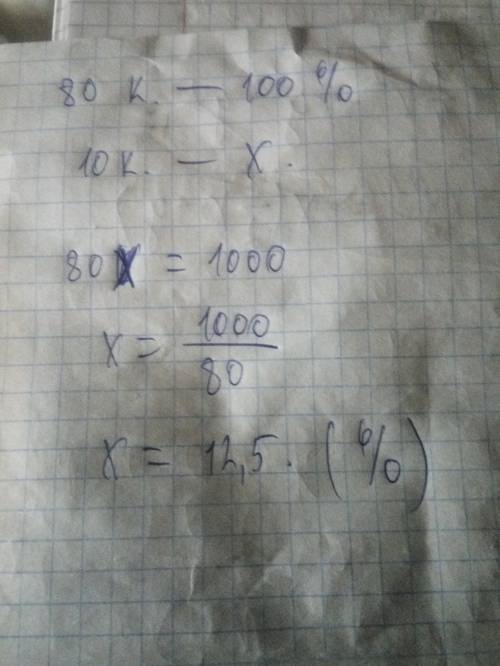 80 к. — 100 %
10 к. — х.
80х = 1000
х = 1000/80
х = 12,5. (%)